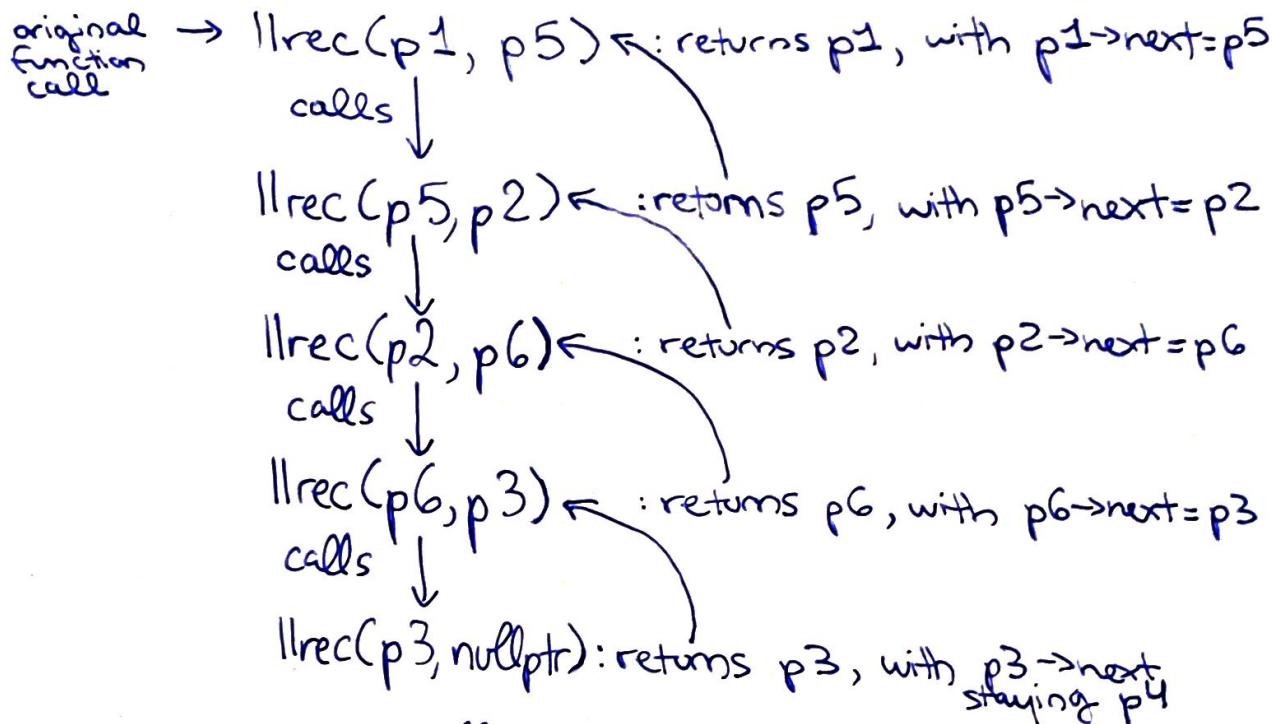 original → llrec(p1, p5) ←: returns p1, with p1->next=p5
function
call
calls
llrec(p5, p2) ← :returns p5, with p5->next= p2
calls
llrec(p2, p6) ← : returns p2, with p2->next=p6
calls
llrec(p6, p3) ← : returns p6, with p6->next=p3
calls
llrec(p3, nullptr): returns p3, with p3->next
staying p4